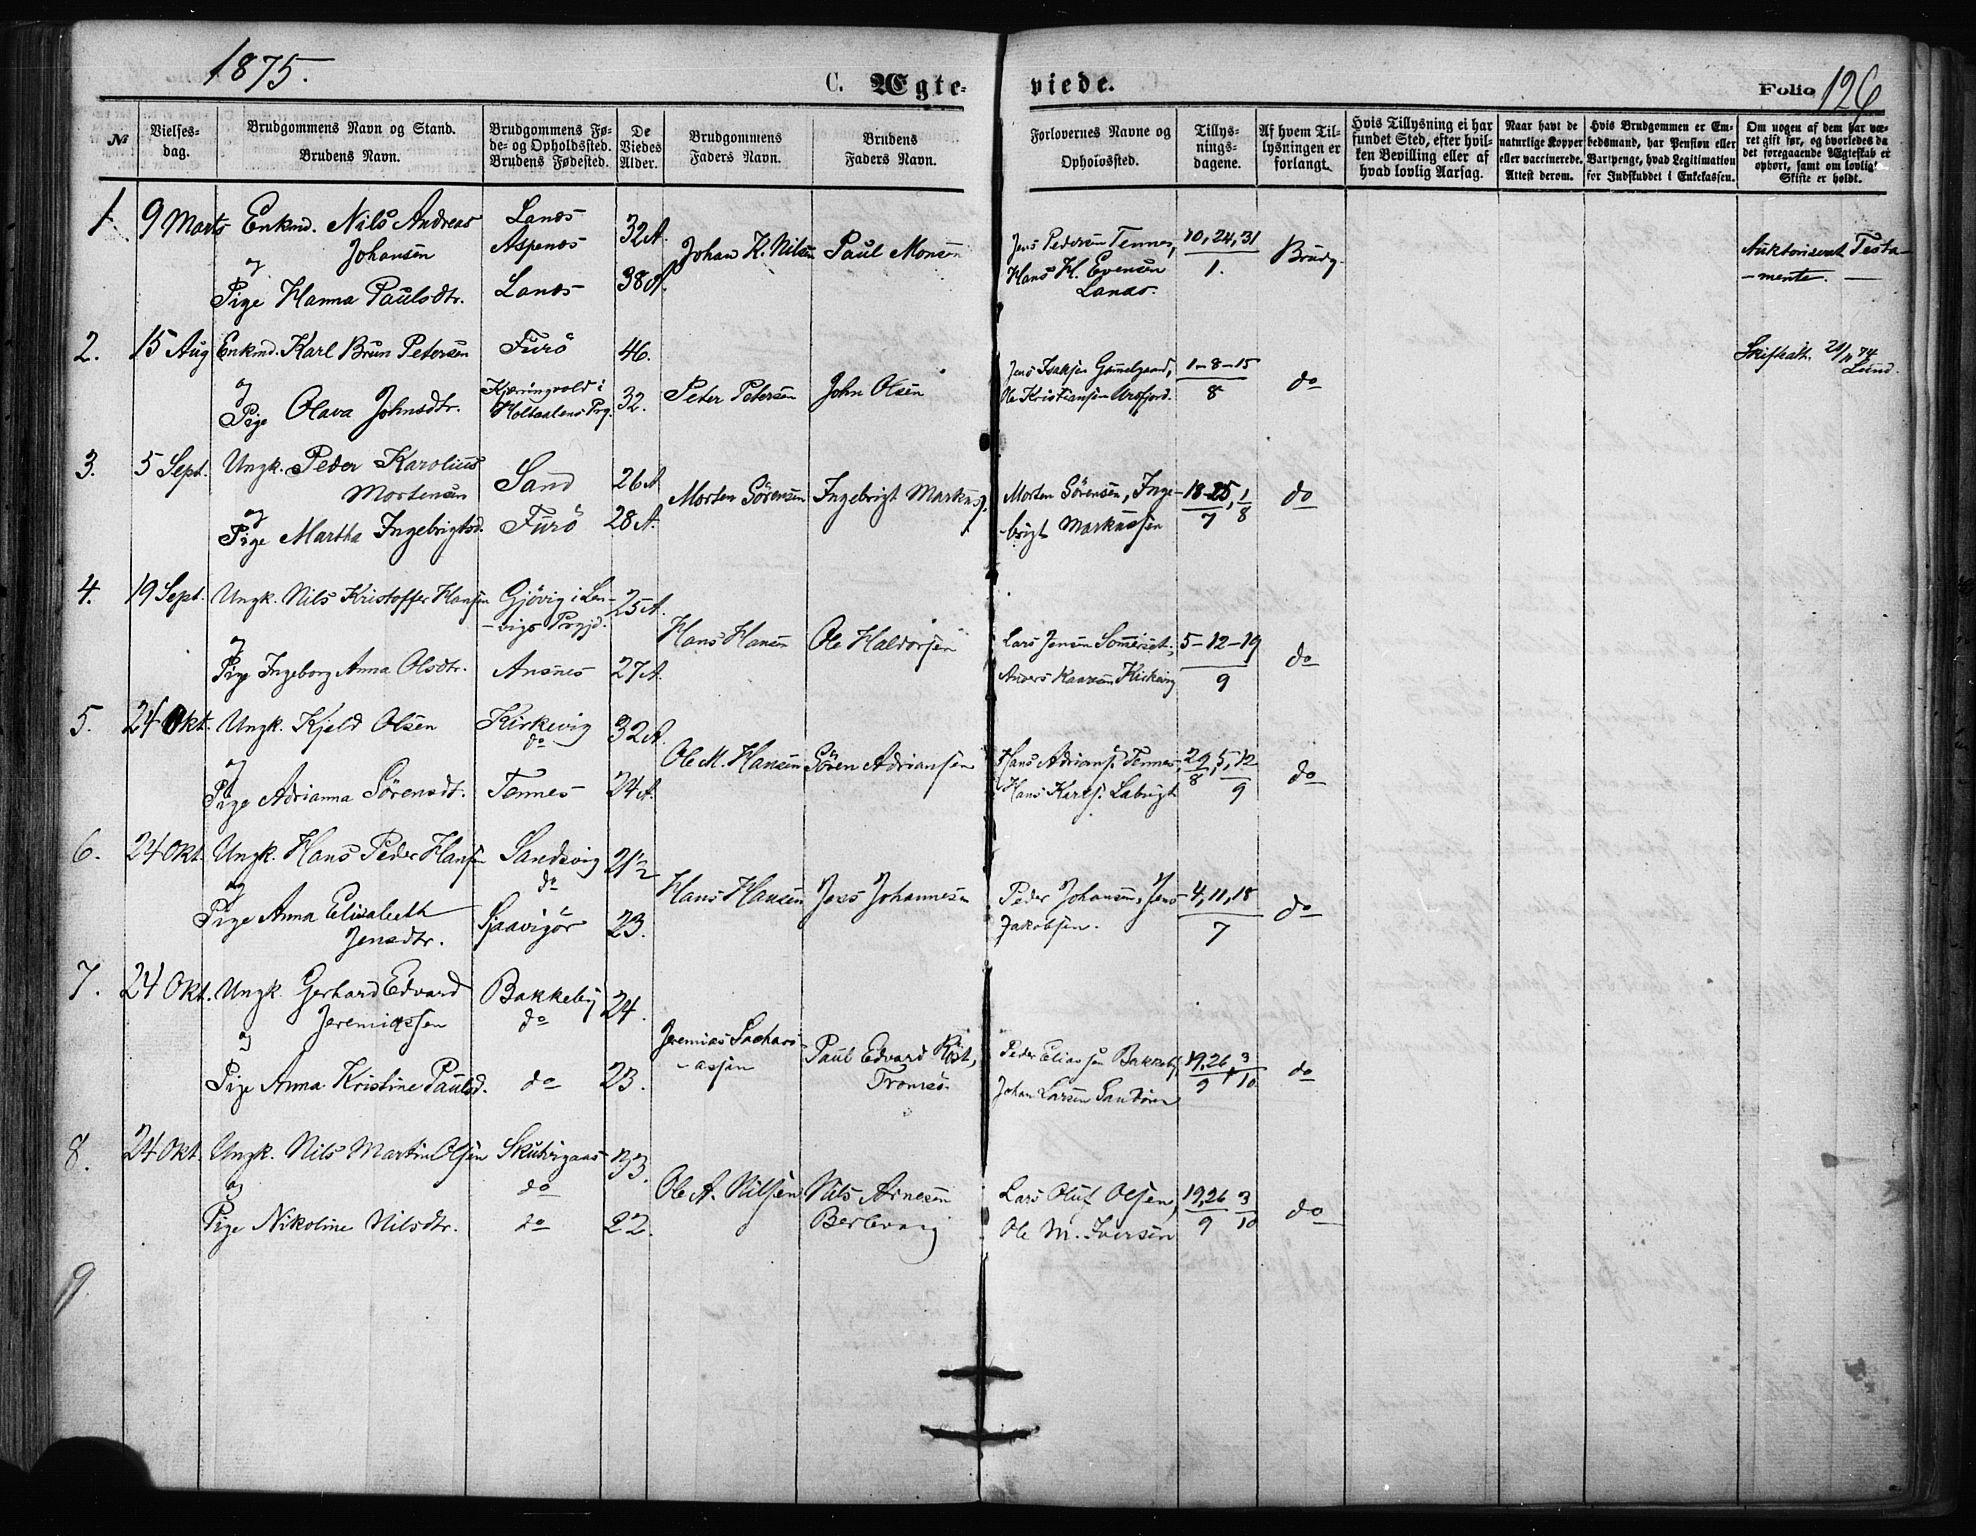 1875.
C. Ægteviede.
Folio 126
№
Vielses-
dag.
Brudgommens Navn og Stand.
Brudens Navn.
Brudgommens Fø-
de- og Opholdssted.
Brudens Fødested.
De
Viedes
Alder.
Brudgommens
Faders Navn.
Brudens
Faders Navn.
Forlovernes Navne og
Opholdssted.
Tillys-
nings-
dagene.
Af hvem Til-
lysningen er
forlangt.
Hvis Tillysning ei har
fundet Sted, efter hvil-
ken Bevilling eller af
hvad lovlig Aarsag.
Naar havt de
naturlige Kopper
eller vaccinerede.
Attest derom.
Hvis Brudgommen er Em-
bedsmand, har Pension eller
Vartpenge, hvad Legitimation
for Indskuddet i Enkekassen.
Om nogen af dem har væ-
ret gift før, og hvorledes da
det foregaaende Ægteskab er
ophørt, samt om lovligt
Skifte er holdt.
1. 9 Marts Enkmd. Nils Andreas
Johansen
og
Pige Hanna Paulsdtr.
Lanes
Aspenes
Lanes
32 A.
38 A.
Johan K. Nilsen
Paul Monsen
Jens Pedersen Tennes,
Hans H. Evensen
Lanes.
10, 24, 31
1.
Brudg.
Auktoriseret Testa-
-mente. —
2. 15 Aug Enkmd. Karl Brun Petersen
og
Pige Olava Johnsdtr.
Furö
Kjæringvold i
Holtaalens Prg.
46.
32.
Peter Petersen
John Olsen
Jens Isaksen Gammelgaard,
Ole Kristiansen Ursfjord.
1-8-15
8
do
Skifteatt. 21/11 74
Lund.
3. 5 Sept. Ungk. Peder Karolius
Mortensen
og
Pige Martha Ingebrigtsd.
Sand
Furö
26 A
28 A.
Morten Sörensen
Ingebrigt Markuss.
Morten Sörensen, Inge-
-brigt Markussen
18-25, 1
7 8
do
4. 19 Sept. Ungk. Nils Kristoffer Hansen
og
Pige Ingeborg Anna Olsdtr.
Gjövig i Len-
-vigs Prgjd.
Ansnes
25 A.
27 A.
Hans Hansen
Ole Haldorsen
Lars Jensen Sommerset,
Anders Kaaresen Kirkevig
5-12-19
9
do
5. 24 Okt. Ungk. Kjeld Olsen
og
Pige Adrianna Sörensdtr.
Kirkevig
do
Tennes
32 A.
24 A.
Ole M. Hansen
Sören Adriansen
Hans Adrians. Tennes,
Hans Karls. Labugt
29, 5, 12
8 9
do
6. 24 Okt. Ungk. Hans Peder Hansen
og
Pige Anna Elisabeth
Jensdtr.
Sandsvig
do
Sjaavigör
21½
23.
Hans Hansen
Jens Johannesen
Peder Johansen, Jens
Jakobsen.
4, 11, 18
7
do
7. 24 Okt. Ungk. Gerhard Edvard
Jeremiassen
og
Pige Anna Kristine Paulsd.
Bakkeby
do
do
24.
23.
Jeremias Sachari-
-assen
Paul Edvard Röst,
Tromsö.
Peder Eliassen Bakkeby,
Johan Larsen Sandören
19, 26, 3
9 10
do
8. 24 Okt. Ungk. Nils Martin Olsen
og
Pige Nikoline Nilsdtr.
Skutvignes
do
do
33.
22.
Ole A. Nilsen
Nils Arnesen
Berlevaag
Lars Oluf Olsen,
Ole M. Iversen
19, 26 3
9 10
do
9.